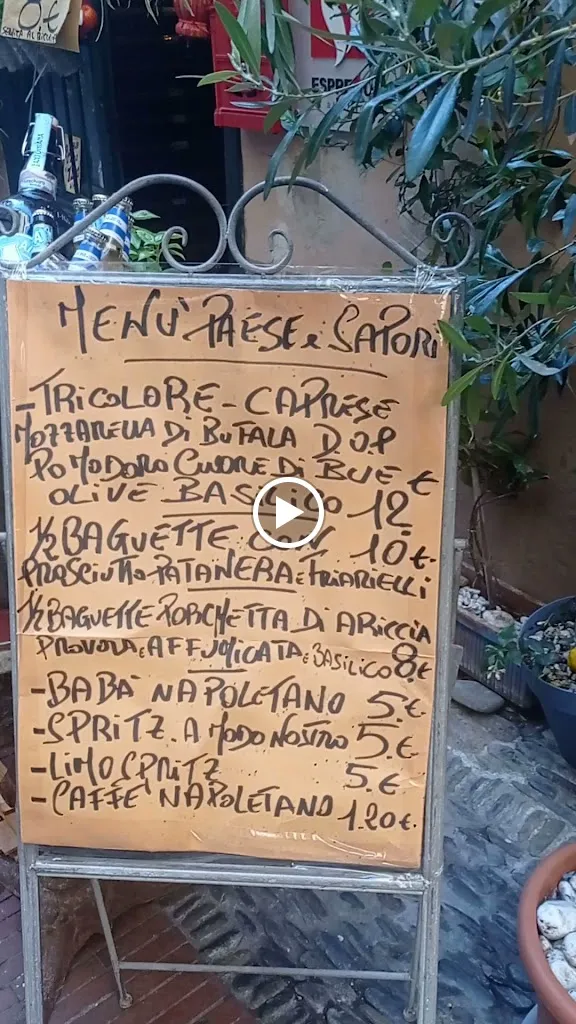 MENÙ PAESE e SAPORI
- TRICOLORE - CAPRESE
MOZZARELLA DI BUFALA D.O.P
POMODORO CUORE DI BUE €
OLIVE BASILICO 12
1/2 BAGUETTE CON 10 €.
PROSCIUTTO PATANERA e FRIARIELLI
1/2 BAGUETTE PORCHETTA DI ARICCIA
PROVOLA e AFFUMICATA e BASILICO 8.€
- BABÀ NAPOLETANO 5.€.
- SPRITZ. A MODO NOSTRO 5.€
- LIMOSPRITZ 5.€
- CAFFÈ NAPOLETANO 1.20 €.